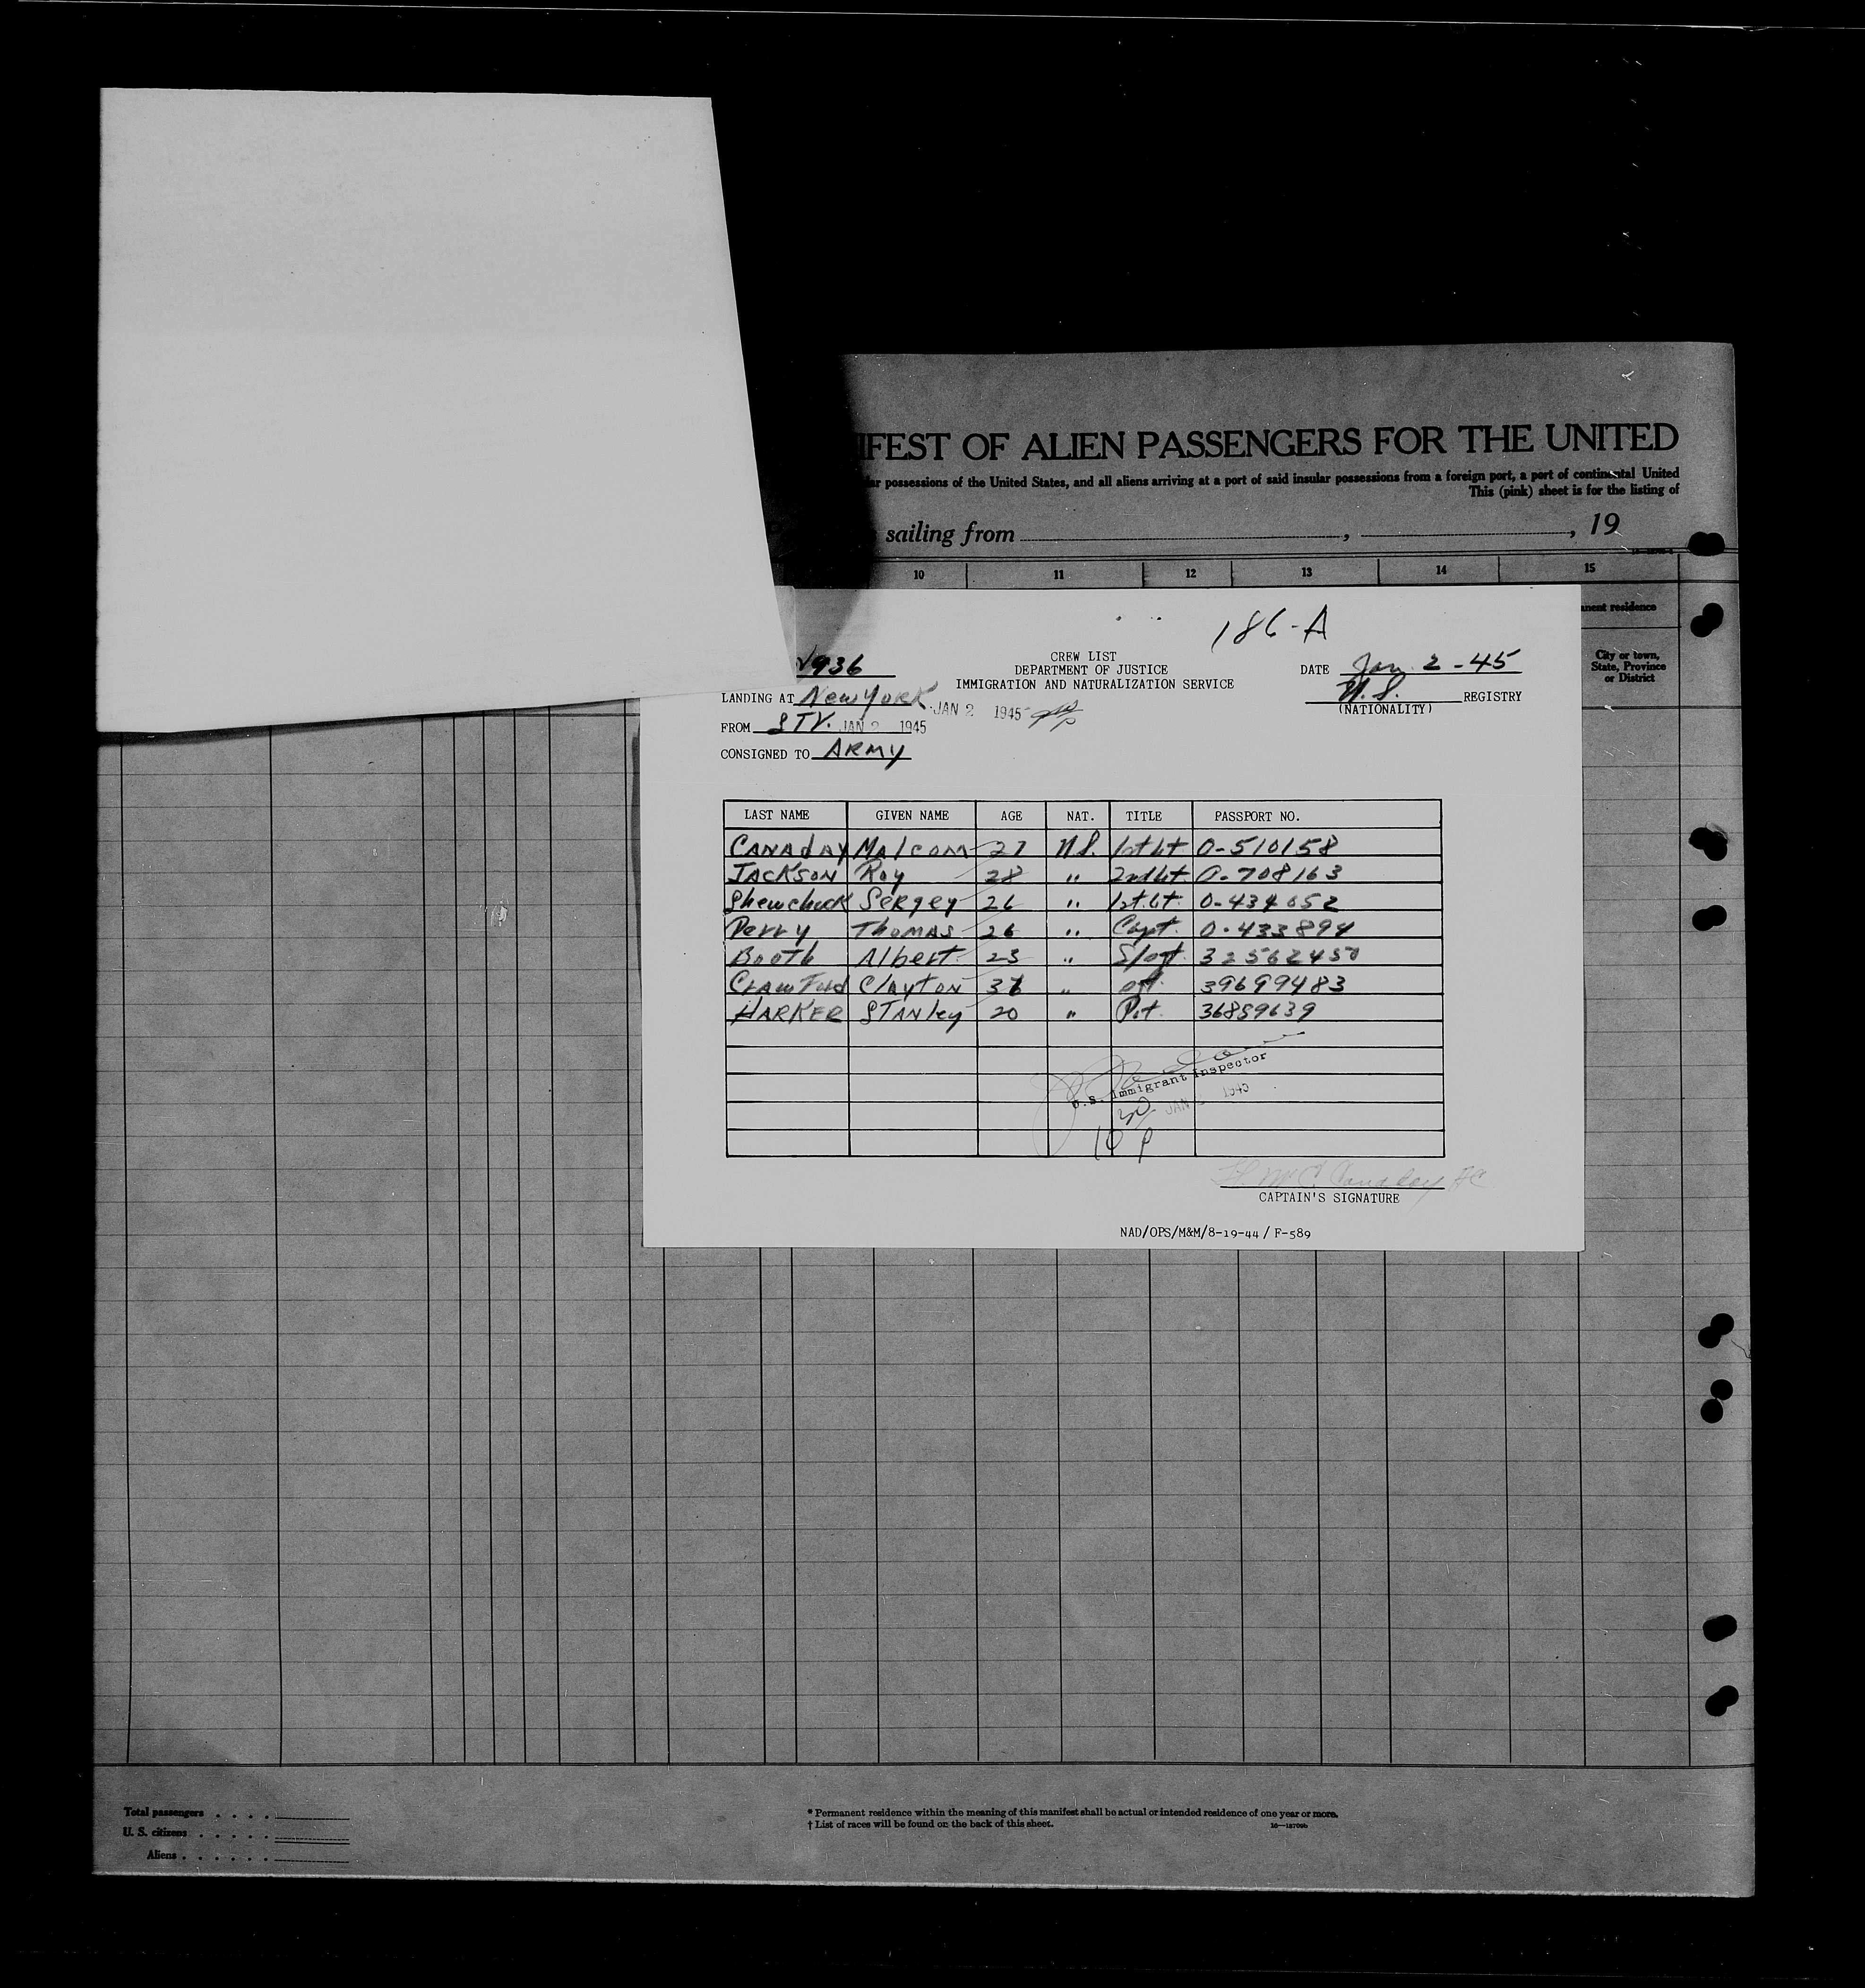 IFEST OF ALIEN PASSENGERS FOR THE UNITED
possessions of the United States, and all aliens arriving at a port of said insular possessions from a foreign port, a port of continental United
This (pink) sheet is for the listing of
sailing from , , 19
10 11 12 13 14 15
nent residence
City or town,
State, Province
or District
186-A
936
CREW LIST
DEPARTMENT OF JUSTICE
IMMIGRATION AND NATURALIZATION SERVICE
DATE Jan 2 - 45
U.S. REGISTRY
(NATIONALITY)
LANDING AT New York JAN 2 1945
FROM STV. JAN 2 1945
CONSIGNED TO ARMY
LAST NAME GIVEN NAME AGE NAT. TITLE PASSPORT NO.
CANADAY Malcom 27 U.S. 1st Lt 0-510158
JACKSON Roy 28 " 2nd Lt 0-708163
Shewchuck Sergey 26 " 1st Lt. 0-434052
Perry Thomas 26 " Capt. 0-433894
Booth Albert 23 " S/sgt. 32562450
Crawford Clayton 36 " 39699483
HARKER Stanley 20 " Pvt. 36859639
U.S. Immigrant Inspector
JAN 1945
10 P
Canaday AC
CAPTAIN'S SIGNATURE
NAD/OPS/M&M/8-19-44 / F-589
Total passengers . . . .
U. S. citizens . . . . .
Aliens . . . . . .
* Permanent residence within the meaning of this manifest shall be actual or intended residence of one year or more.
† List of races will be found on the back of this sheet.